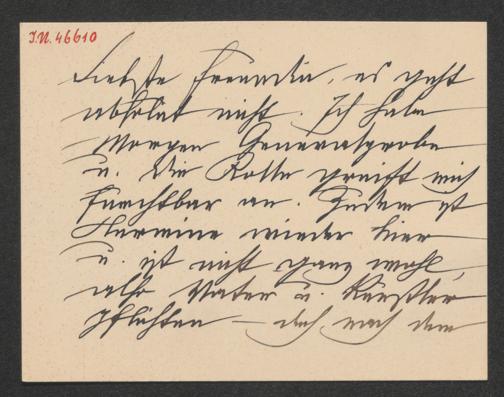 I.N. 46610
Liebste Freundin, es geht
absolut nicht. Ich habe
Morgen Generalprobe
u. die Rolle greift mich
furchtbar an. Zudem ist
Hermine wieder hier
u. ist nicht ganz wohl,
also Vater u. Künstler
pflichten – doch nach dem